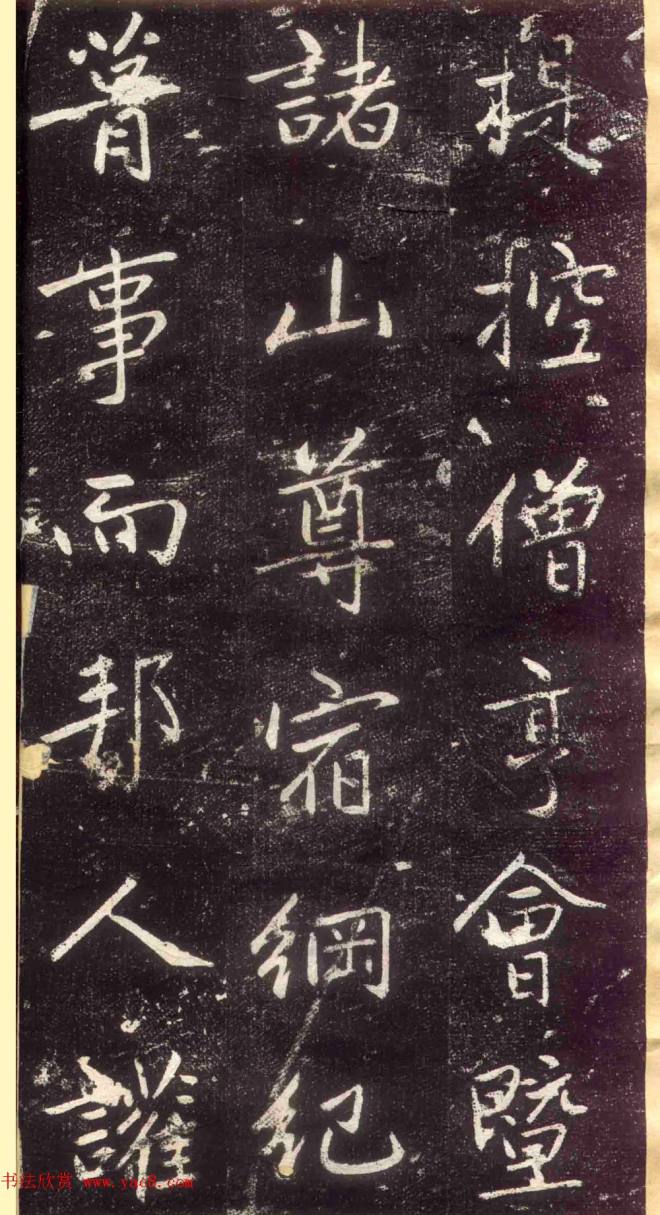 提控僧亨會暨
諸山尊宿綱紀
事而邦人讙
书法欣赏 www.yac8.com